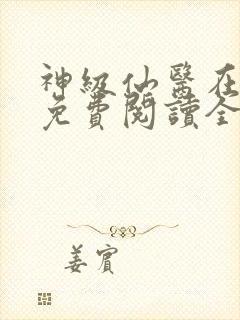 神級仙醫在
免費閱讀全
姜賓